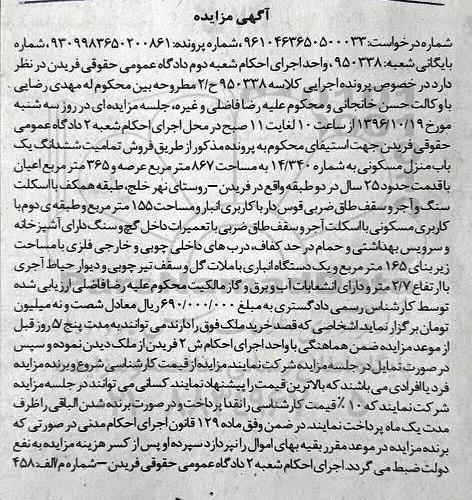 آگهی مزایده
شماره درخواست: ۹۶۱۰۴۶۳۶۵۰۵۰۰۰۳۳، شماره پرونده: ۹۳۰۹۹۸۳۶۵۰۲۰۰۸۶۱، شماره
بایگانی شعبه: ۹۵۰۳۳۸، واحد اجرای احکام شعبه دوم دادگاه عمومی حقوقی فریدن در نظر
دارد در خصوص پرونده اجرایی کلاسه ۹۵۰۳۳۸ ح/۲ مطروحه بین محکوم له مهدی رضایی
با وکالت حسن خانجانی و محکوم علیه رضا فاضلی و غیره، جلسه مزایده ای در روز سه شنبه
مورخ ۱۳۹۶/۱۰/۱۹ از ساعت ۱۰ لغایت ۱۱ صبح در محل اجرای احکام شعبه ۲ دادگاه عمومی
حقوقی فریدن جهت استیفای محکوم به پرونده مذکور از طریق فروش تمامیت ششدانگ یک
باب منزل مسکونی به شماره ۱۴/۳۴۰ به مساحت ۸۶۷ متر مربع عرصه و ۳۶۵ متر مربع اعیان
با قدمت حدود ۲۵ سال در دو طبقه واقع در فریدن – روستای نهر خلج، طبقه همکف با اسکلت
سنگ و آجر و سقف طاق ضربی قوس دار با کاربری انبار و مساحت ۱۵۵ متر مربع و طبقه ی دوم با
کاربری مسکونی با اسکلت آجر و سقف طاق ضربی با تعمیرات داخل گچ و سنگ دارای آشپزخانه
و سرویس بهداشتی و حمام در حد کفاف، درب های داخلی چوبی و خارجی فلزی با مساحت
زیر بنای ۱۶۵ متر مربع و یک دستگاه انباری با ملات گل و سقف تیر چوبی و دیوار حیاط آجری
با ارتفاع ۲/۷ متر و دارای انشعابات آب و برق و گاز مالکیت محکوم علیه رضا فاضلی ارزیابی شده
توسط کارشناس رسمی دادگستری به مبلغ ۶۹۰/۰۰۰/۰۰۰ ریال معادل شصت و نه میلیون
تومان برگزار نماید اشخاصی که قصد خرید ملک فوق را دارند می توانند به مدت پنج ۵ روز قبل
از موعد مزایده ضمن هماهنگی با واحد اجرای احکام ش ۲ فریدن از ملک دیدن نموده و سپس
در صورت تمایل در جلسه مزایده شرکت نمایند. مزایده از قیمت کارشناسی شروع و برنده مزایده
فرد یا افرادی می باشند که بالاترین قیمت را پیشنهاد نمایند. کسانی می توانند در جلسه مزایده
شرکت نمایند که ۱۰٪ قیمت کارشناسی را نقدا پرداخت و در صورت برنده شدن الباقی را ظرف
مدت یک ماه پرداخت نمایند. در ضمن وفق ماده ۱۲۹ قانون اجرای احکام مدنی در صورتی که
برنده مزایده در موعد مقرر بقیه بهای اموال را نپردازد سپرده او پس از کسر هزینه مزایده به نفع
دولت ضبط می گردد. اجرای احکام شعبه ۲ دادگاه عمومی حقوقی فریدن – شماره م الف: ۴۵۸